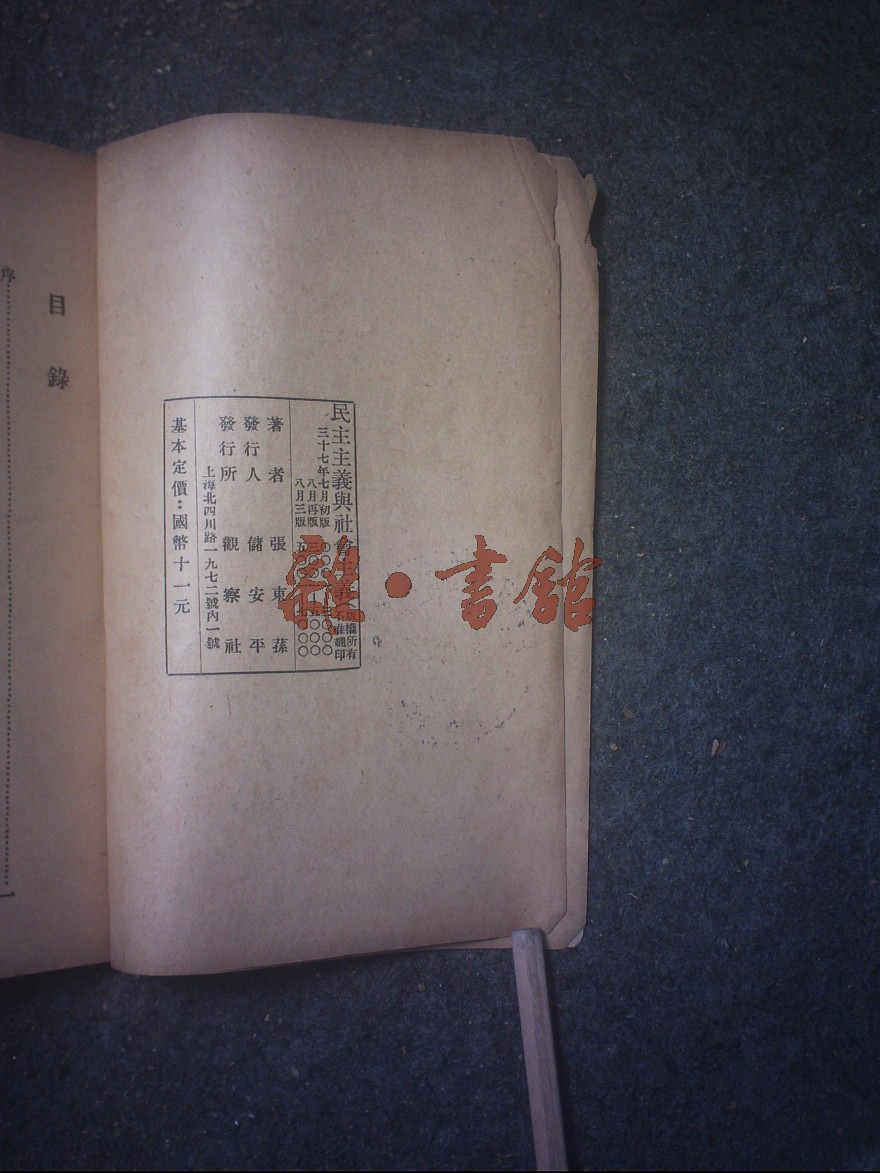 民主主義與社會主義
版權所有
不准翻印
三十七年七月初版
八月再版
八月三版
著者 張東蓀
發行人 儲安平
發行所 觀察社
上海北四川路一九七二號內一號
基本定價：國幣十一元
目錄
序
書館